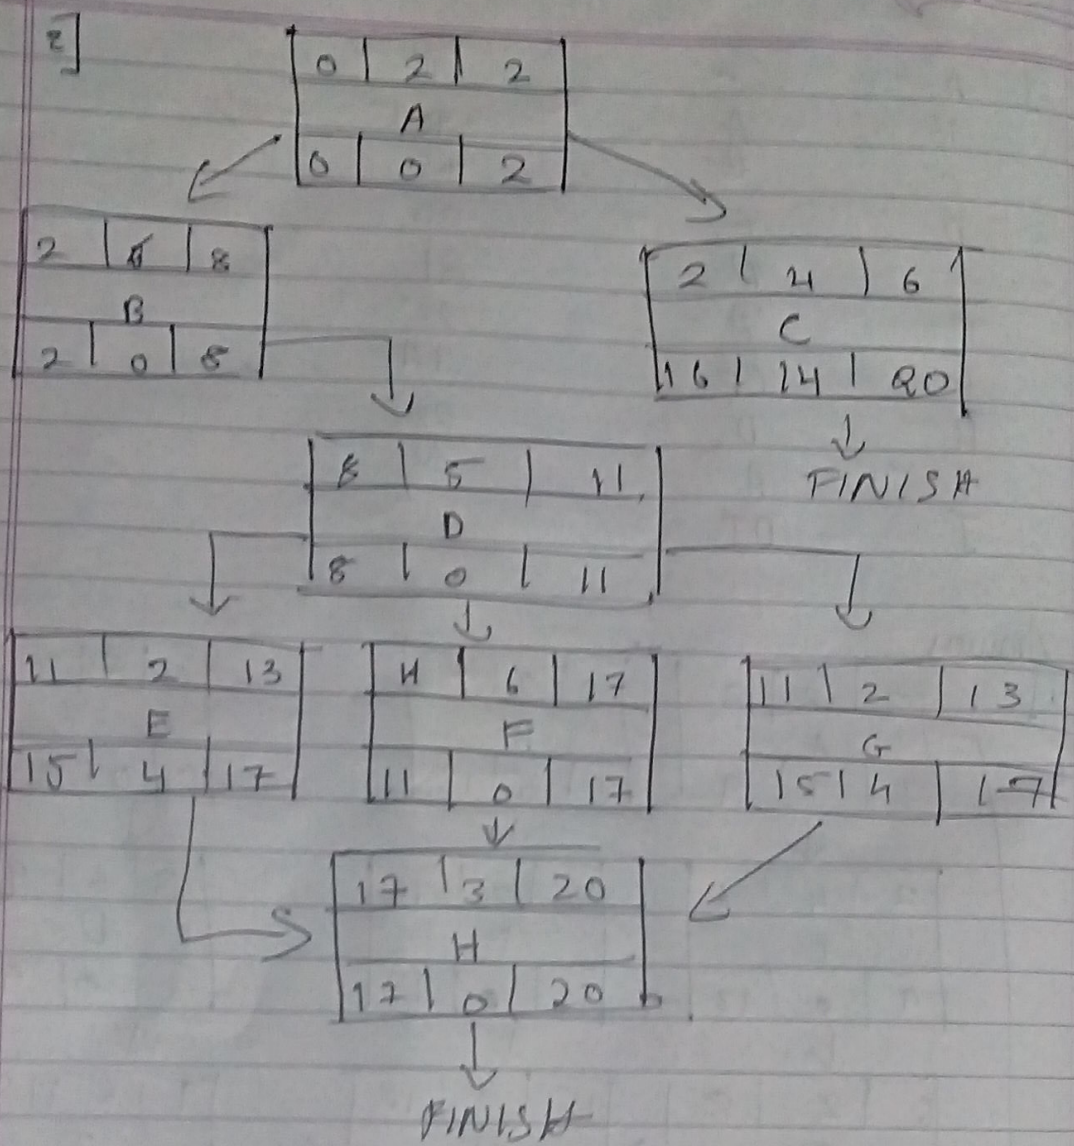 2]
0 2 2
A
0 0 2
2 6 8
B
2 0 8
2 4 6
C
16 14 20
FINISH
8 5 11
D
8 0 11
11 2 13
E
15 4 17
11 6 17
F
11 0 17
11 2 13
G
15 4 17
17 3 20
H
17 0 20
FINISH